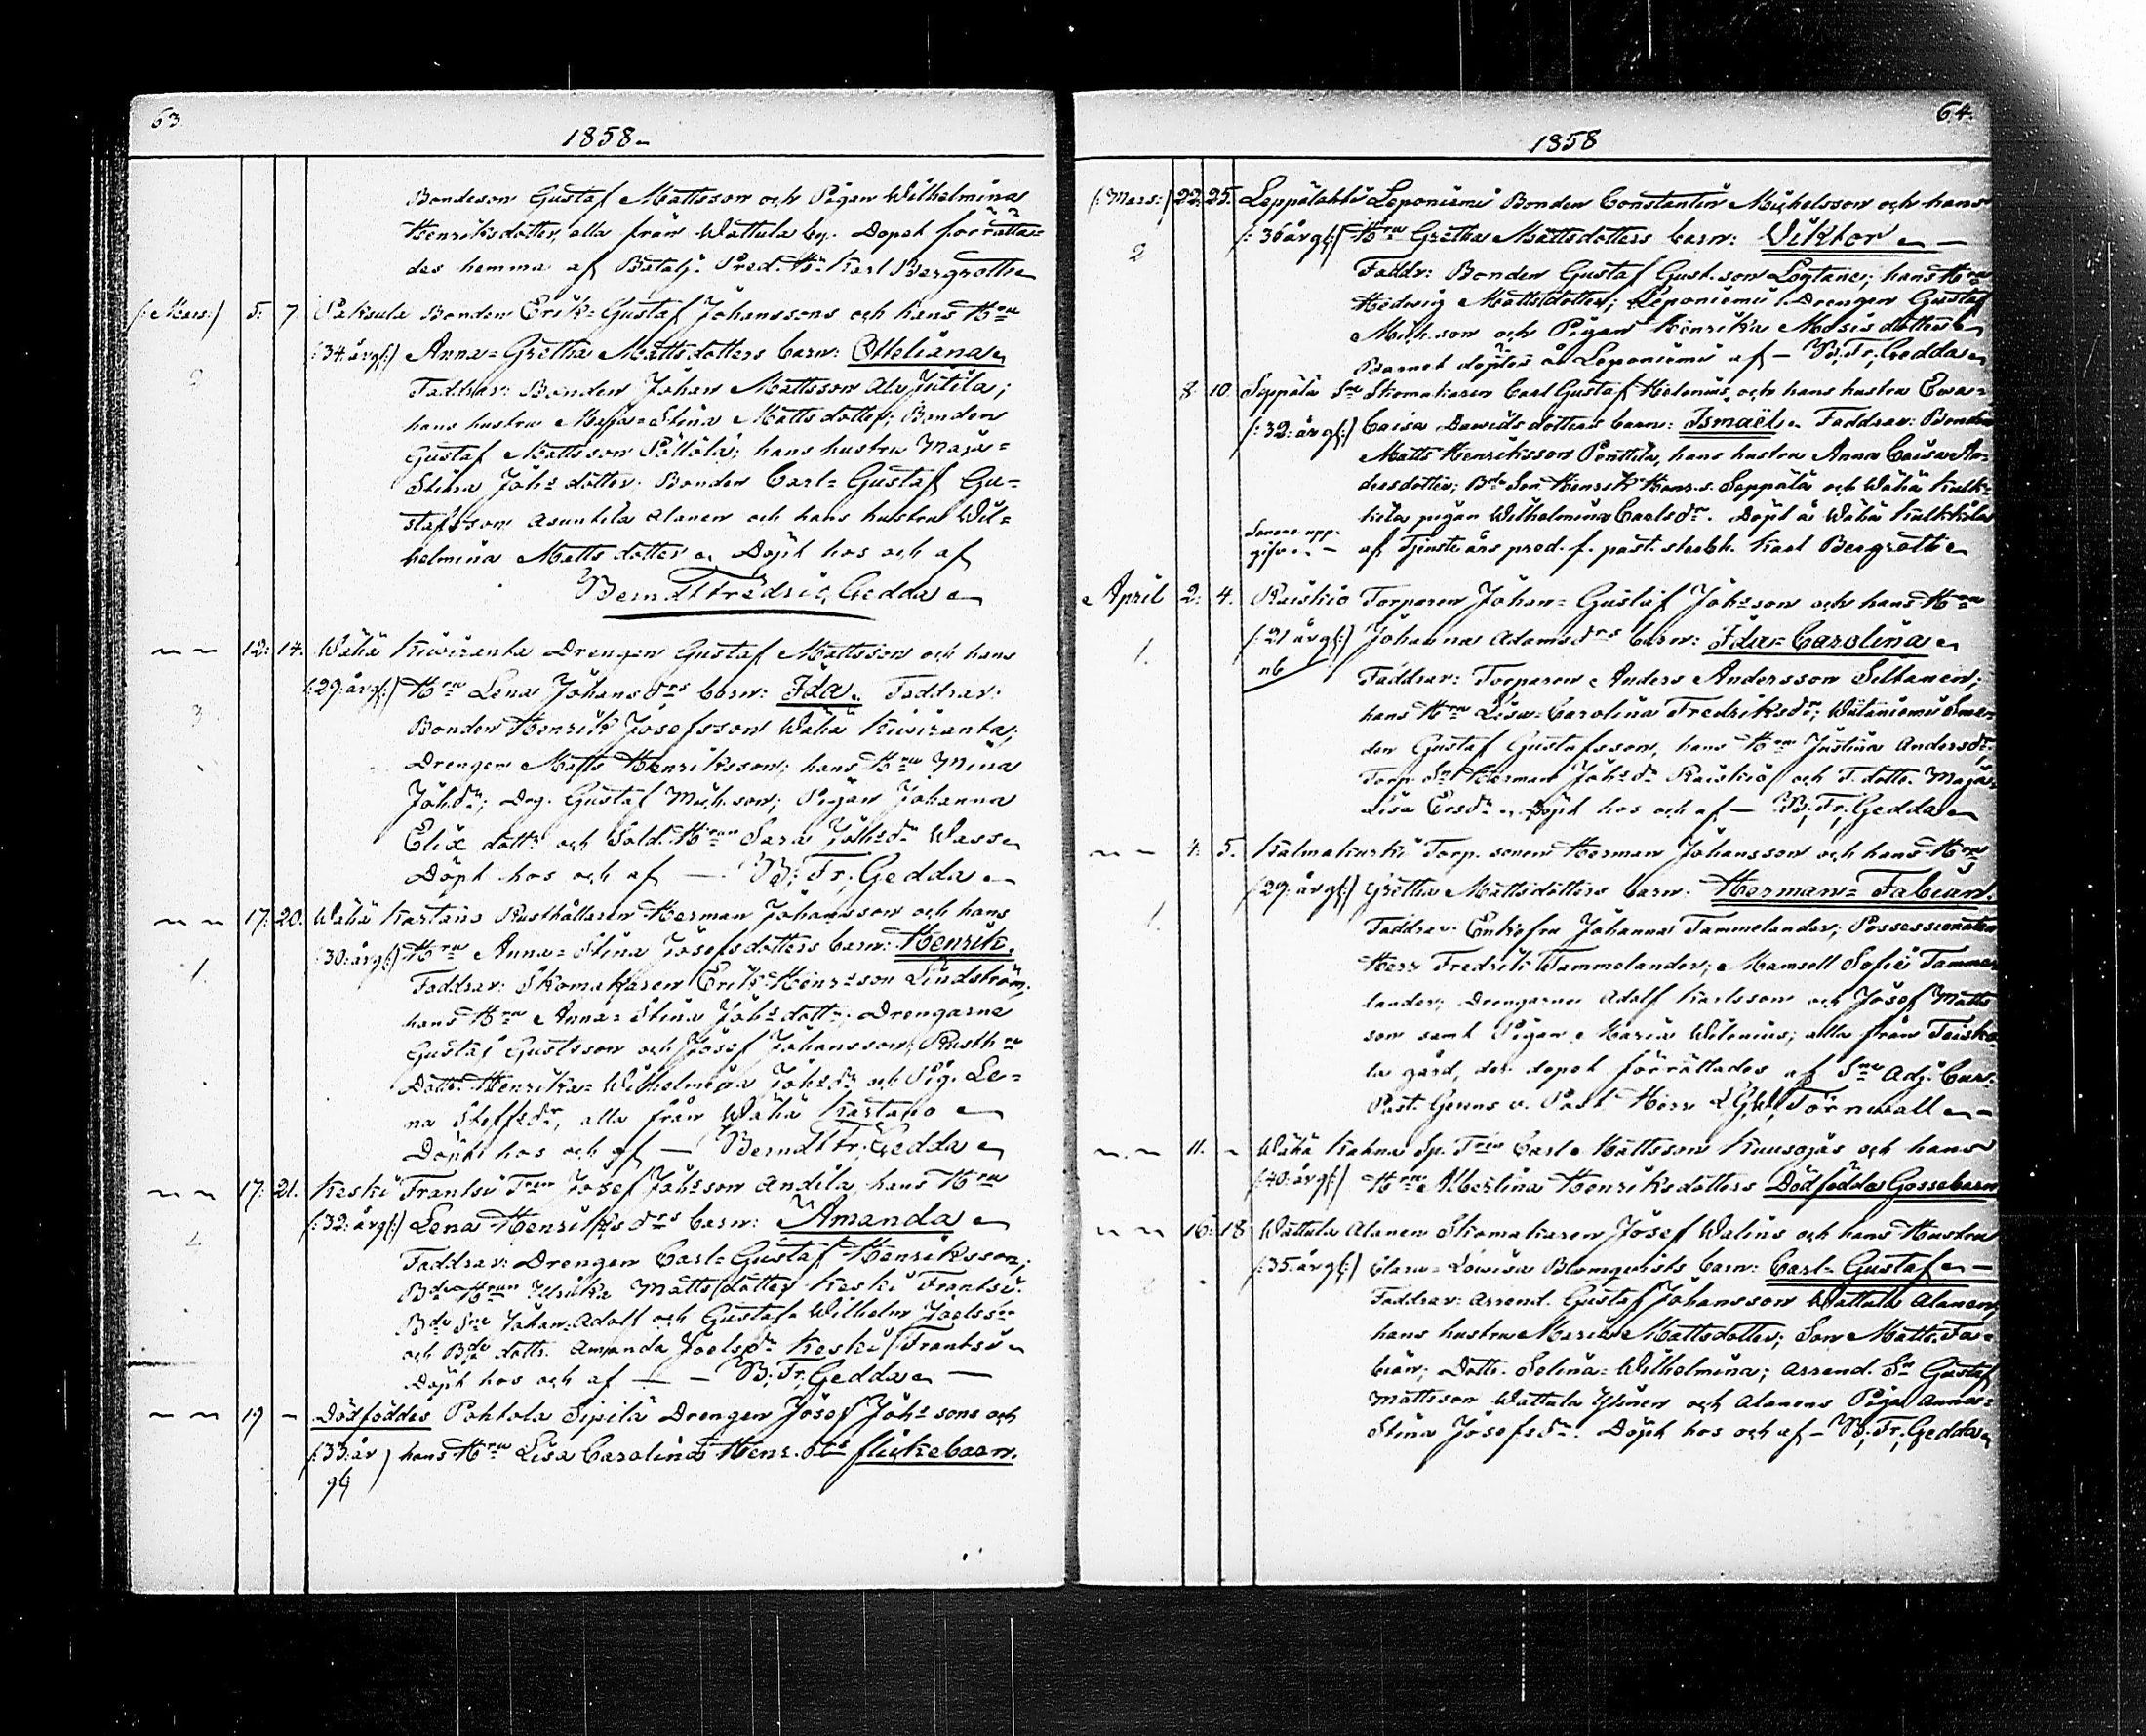 63
1858
Bondeson Gustaf Mattsson och Pigan Wilhelmina
Henriksdotter, alla från Wattula by. Dopet förrätta=
des hemma af Batalj. Pred. Hr Karl Bergroth
(:Mars:) 5. 7. Paksula Bonden Erik=Gustaf Johanssons och hans Hru
(:34. årg:) Anna=Gretha Mattsdotters barn: Otteliana
2
Faddrar: Bonden Johan Mattsson Ala Jutila;
hans hustru Maja=Stina Mattsdotter; Bonden
Gustaf Mattsson Pöllölä; hans hustru Maja=
Stina Joh:s dotter; Bonden Carl=Gustaf Gu=
stafsson Asuntila Alanen och hans hustru Wil=
helmina Matts dotter. Döpt hos och af
Berndt Fredric Gedda
12. 14. Wähä Kiwiranta Drengen Gustaf Mattsson och hans
(:29: årg:) Hru Lena Johans drs barn: Ida. Faddrar:
3
Bonden Henrik Josefsson Wähä Kiwiranta;
Drengen Matts Henriksson; hans Hru Mina
Joh. dr; Drg. Gustaf Mich.son; Pigan Johanna
Eliæ dottr och Sold. Hrun Sara Joh:s dr Wass
Döpt hos och af — B; Fr; Gedda
17. 20. Wähä Kartano Rusthållaren Herman Johansson och hans
(:30: årg:) Hru Anna=Stina Josefsdotters barn: Henrik.
1.
Faddrar: Skomakaren Erik Henr:sson Lindström;
hans Hru Anna=Stina Joh:s dottr; Drengarne
Gustaf Gustsson och Josef Johansson; Rusth:
Dottr. Henrika=Wilhelmina Joh:s dr och Pig. Le=
na Steffsdr, alla från Wähä Kartano
Döpt hos och af — Berndt Fr; Gedda
17. 21. Keski Frantsi Tren Josef Joh:sson Andila, hans Hru
(:32: årg:) Lena Henriks drs barn: Amanda
Faddrar: Drengen Carl=Gustaf Henriksson;
Bde Hrun Ulrika Mattsdotter Keski Frantsi.
Bde Sne Johan=Adolf och Gustaf=Wilhelm Joels
och Bde dottr. Amanda Joelsdr Keski Frantsi
Döpt hos och af — B; Fr; Gedda
19 — Dödföddes Pohtola Sipilä Drengen Josef Joh:s sons och
(:33: år hans Hru Lisa Carolina Henr. drs flickebarn.
g:)
64.
1858
(:Mars:) 22. 25. Leppälahti Leponiemi Bonden Constantin Michelsson och hans
(:36 årg:) Hru Gretha Mattsdotters barn: Viktor
2
Faddr: Bonden Gustaf Gust.son; hans Hru
Hedwig Mattsdotter; Leponiemi Drengen Gustaf
Mich.son och Pigan Henrika Mosis dotter
Barnet döptes å Leponiemi af — B; Fr; Gedda
8. 10. Seppälä Sn Skomakaren Carl Gustaf Helenius, och hans hustru Ewa=
(:32: årg:) Caisa Dawids dotters barn: Ismaël. Faddrar: Bonden
Matts Henriksson Penttila, hans hustru Anna Caisa An=
dersdotter; Bde Son Henrik Henr.s. Seppälä och Wähä Kulk=
kila pigan Wilhelmina Carlsdr. Döpt å Wähä Kulkkila
Senare upp-
gifven — af Tjenst års pred. f. past. sterbh. Karl Bergroth
April 2. 4. Raiskio Torparen Johan=Gustaf Joh:sson och hans Hru
1. (:21 årg:) Johanna Adams drs barn: Ida=Carolina
nb
Faddrar: Torparen Anders Andersson Silhanen;
hans Hru Lisa=Carolina Fredriksdr; Wätäniemi
den Gustaf Gustafsson, hans Hru Justina Andersdr;
Torp. Sn Herman Joh:s dr Raiskio och T. dottr. Maja=
Lisa Ersdr. Döpt hos och af — B; Fr; Gedda
4. 5. Kalmakurki Torp. sonen Herman Johansson och hans Hru
(:29: årg:) Gretha Mattsdotters barn: Herman=Fabian.
1.
Faddrar: Enkefru Johanna Tammelander; Possessionaten
Herr Fredrik Tammelander; Mamsell Sofie Tamme
lander; Drengarne Adolf Karlsson och Josef Matts
son samt Pigan Maria Wilenius; alla från Toisko
la gård, der dopet förrättades af Sne Adj. Cur.
Past. Gerens v. Past Herr L.G.W. Törnwall
11. — Wähä Kahna Sp. Tren Carl Mattsson Kuusojas och hans
(:40: årg:) Hru Albertina Henriksdotters Dödfödda Gossebarn
16. 18 Wattula Alanen Skomakaren Josef Walins och hans Hustru
(:35: årg:) Clara=Lowisa Blomqvists barn: Carl=Gustaf
Faddrar: Arrend. Gustaf Johansson Wattula Alanen,
hans hustru Maria Mattsdotter; Son Matts. Fa=
bian; Dottr. Selina=Wilhelmina; Arrend. Sn Gustaf
Mattsson Wattula Ylinen och Alanens Piga Anna=
Stina Josefsdr. Döpt hos och af — B; Fr; Gedda